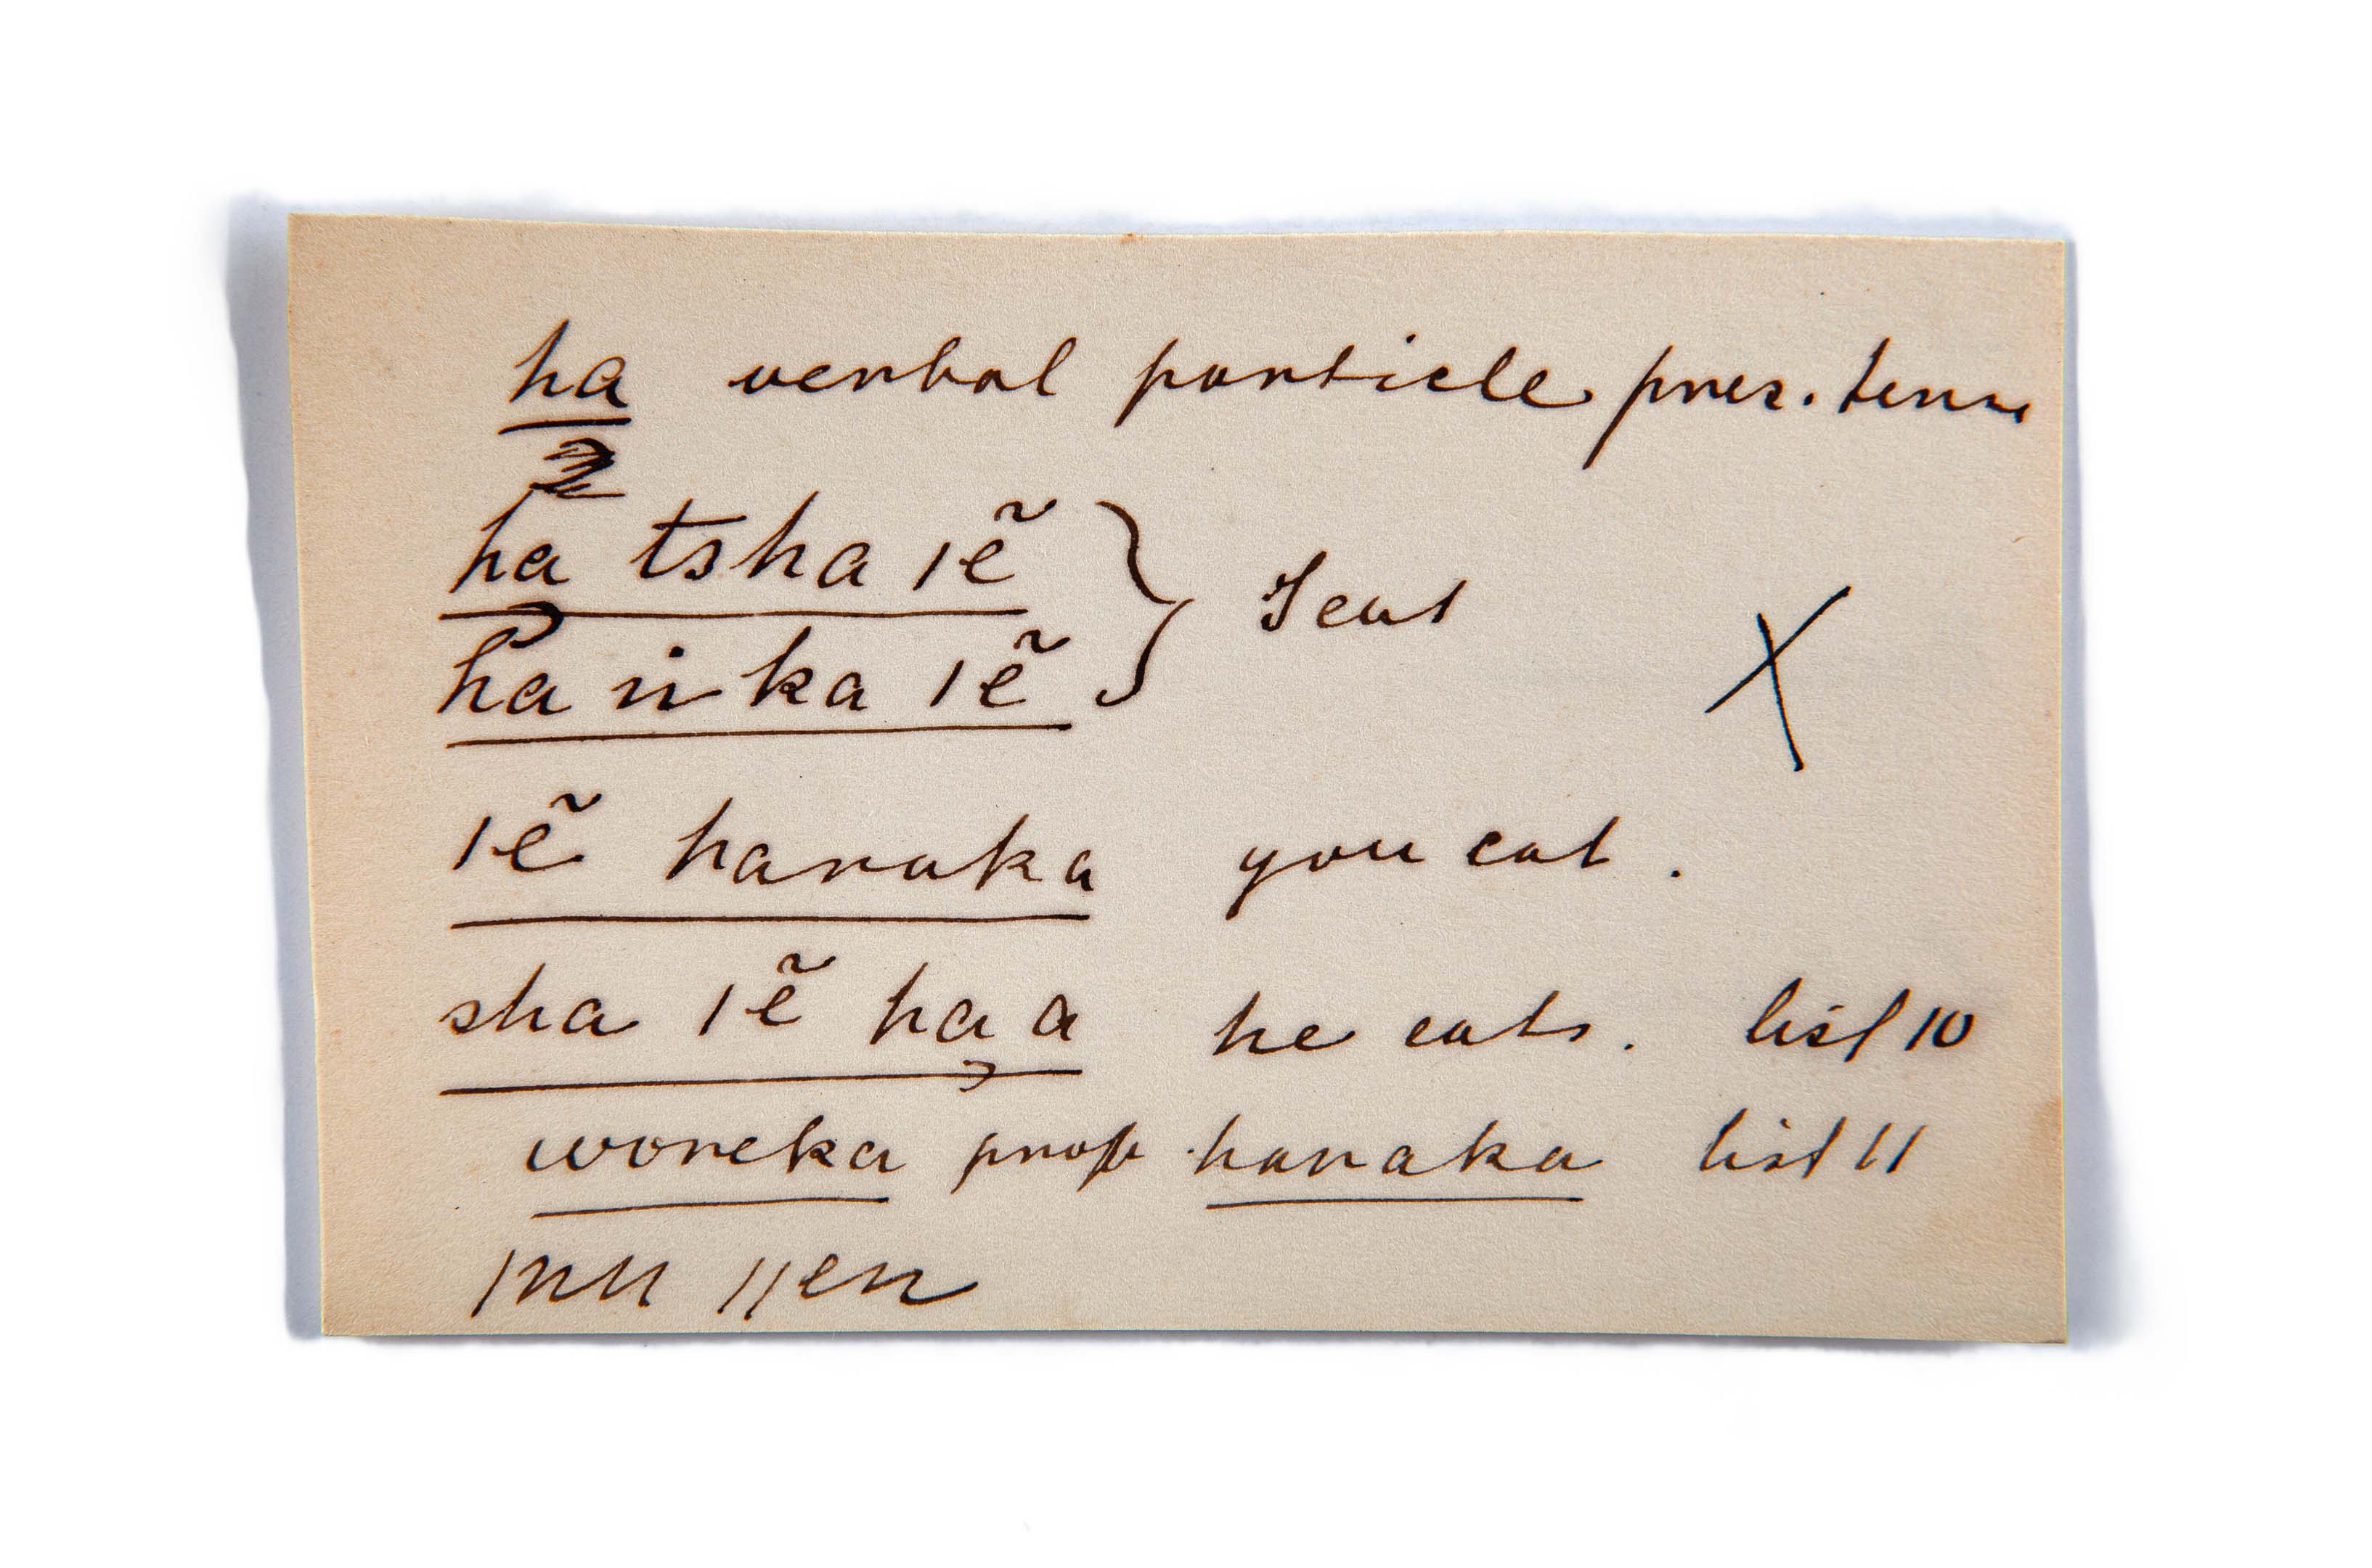 ha verbal particle pres. tense
ha tsha ǀẽ } I eat
ha ṅ ka ǀẽ
X
ǀẽ haraka you eat.
sha ǀẽ ha a he eats. list 10
woreka prob haraka list 11
ǀnu ǁen